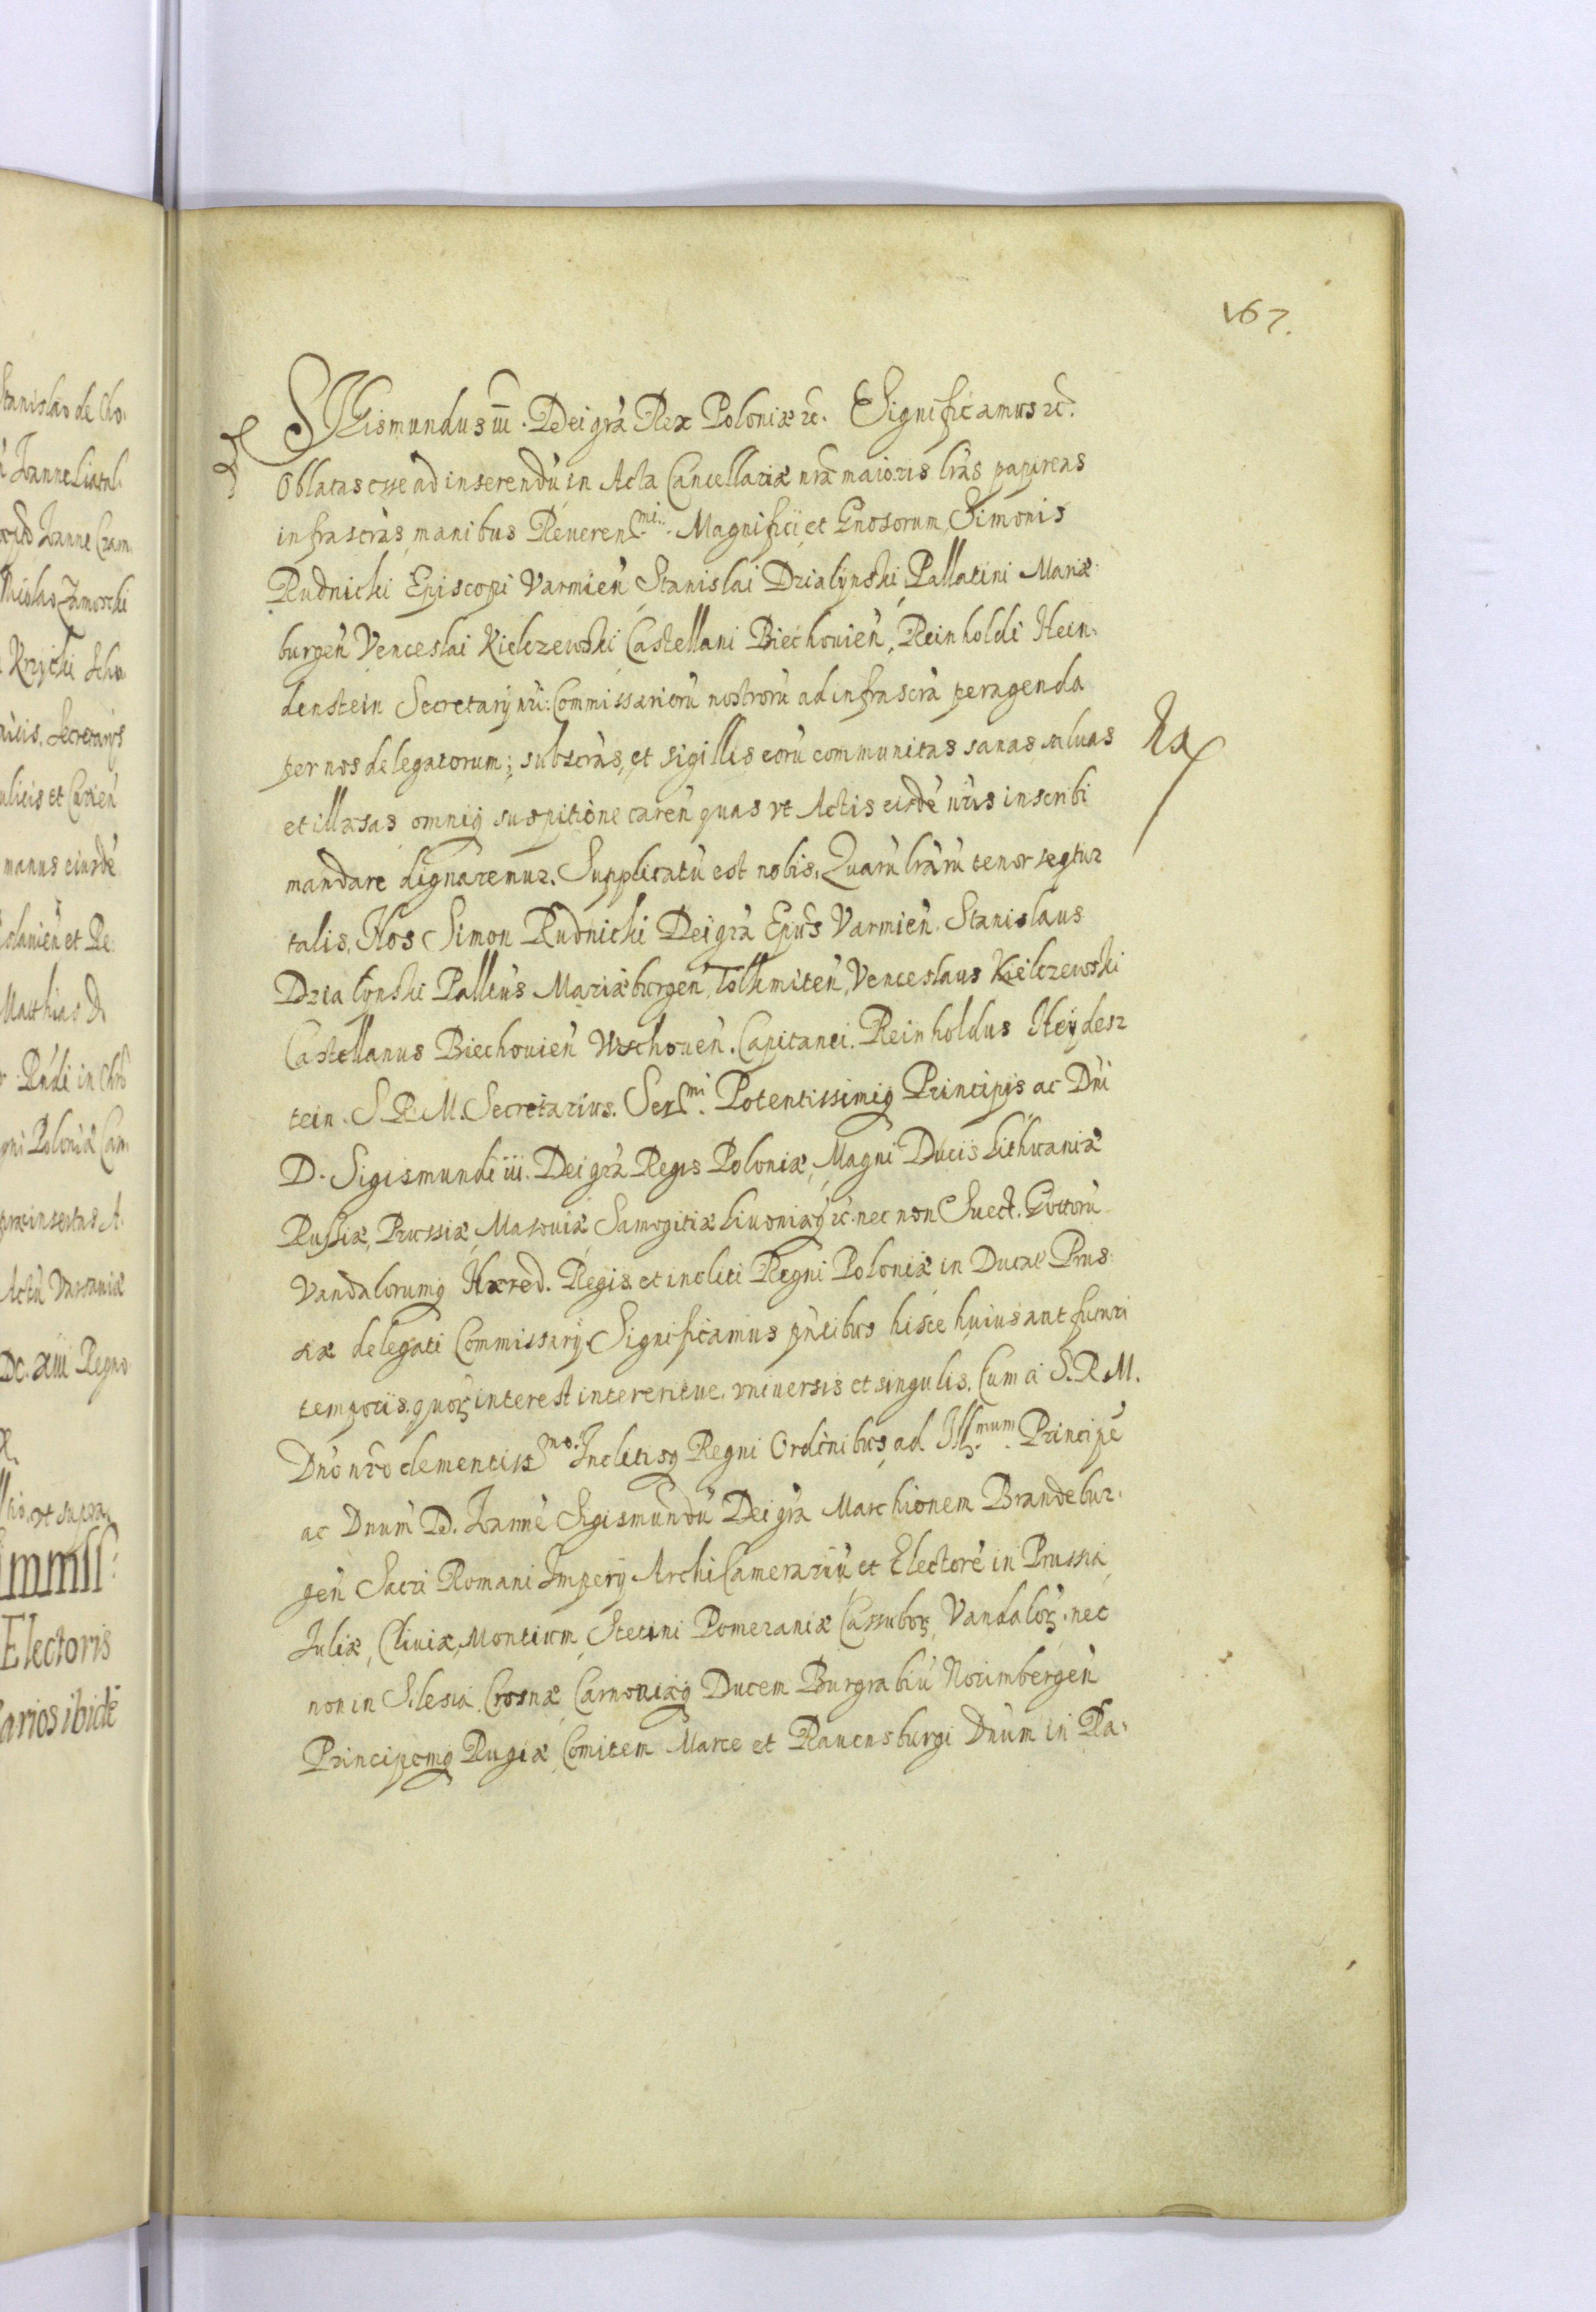 167.
SIGismundus iii. Dei grà Rex Poloniæ &c. Significamus &c.
Oblatas esse ad inserendũ in Acta Cancellariæ nr̃æ maioris lr̃as papireas
infrascr̃as, manibus Reueren^mi. Magnifici, et Gnosorum, Simonis
Rudnicki Episcopi Varmień, Stanislai Dzialynski, Pallatini Mariæ-
burgeń Venceslai Kielczewski Castellani Biechouień, Reinholdi Hein-
denstein Secretarij nri: Commissariorũ nostrorũ ad infrascr̃a peragenda
per nos delegatorum; subscr̃as, et sigillis eorũ communitas sanas, saluas
et illæsas omniq̃ suspitione careń quas vt Actis eisdẽ nr̃is inscribi
mandare dignaremur. Supplicatũ est nobis, Quarũ lr̃arũ tenor seqtur
talis. Nos Simon Rudnicki Dei grã Epũs Varmień. Stanislaus
Dzialynski Pallũs Mariæburgeń, Tolkmiteń, Venceslaus Kielczewski
Castellanus Biechouień Wschoueń. Capitanei. Reinholdus Heydesz
tein. S. R. M. Secretarius. Ser^mi. Potentissimiq̃ Principis ac Dñi
D. Sigismundi iii. Dei grã Regis Poloniæ, Magni Ducis Lithuaniæ
Russiæ, Prussiæ, Masouiæ Samogitiæ Liuoniæq̃ &c. nec non Suec. Gottorũ
Vandalorumq̃ Hæred. Regis. et incliti Regni Poloniæ in Ducat Prus-
siæ delegati Commissarij. Significamus pñtibus hisce huius aut futuri
temporis. quoꝝ interest intereritue. vniuersis et singulis. Cum à S. R. M.
Dño nr̃o clementiss^mo. Inclitisq̃ Regni Ordinibus, ad Ill^mum. Principẽ
ac Dnum D. Joannẽ Sigismundũ Dei grã Marchionem Brandebur-
geń Sacri Romani Imperij ArchiCamerariũ et Electorẽ in Prussia,
Juliæ, Cliuiæ, Montium, Stetini Pomeraniæ Cassuboꝝ, Vandaloꝝ. nec
non in Silesia. Crosnæ Carnouiæq̃ Ducem Burgrabiũ Norimbergeń
Principemq̃ Rugiæ, Comitem Marce et Rauensburgi Dnum in Ra-